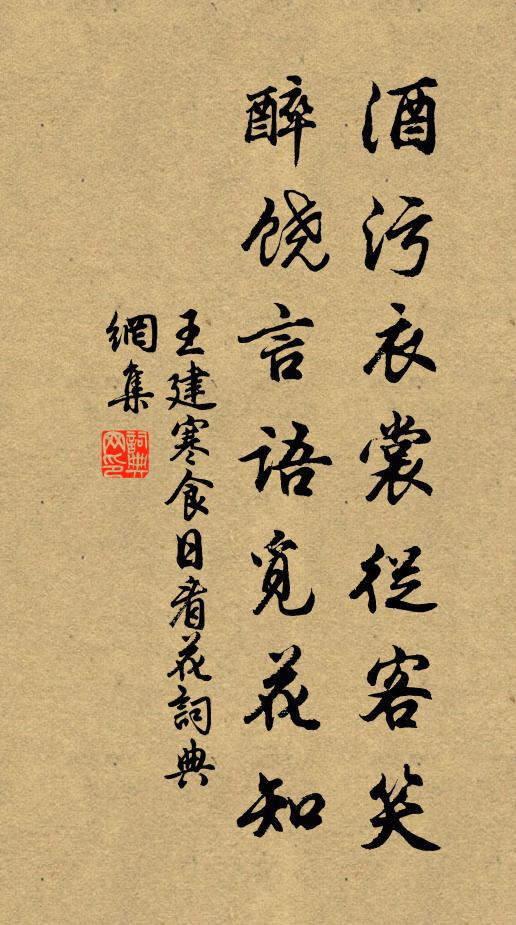 酒污衣裳從客笑
醉饶言语覓花知
王建寒食日看花詞典
網集
詞典
网印